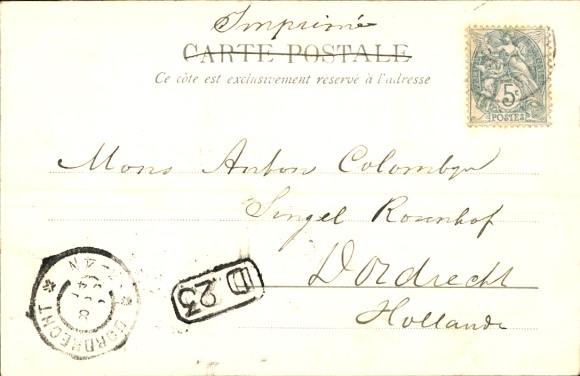 Imprimé
CARTE POSTALE
Ce côté est exclusivement réservé à l'adresse
5c
POSTES
Mons Anton Colombyn
Singel Rosenhof
Dordrecht
Hollande
D 23
DORDRECHT